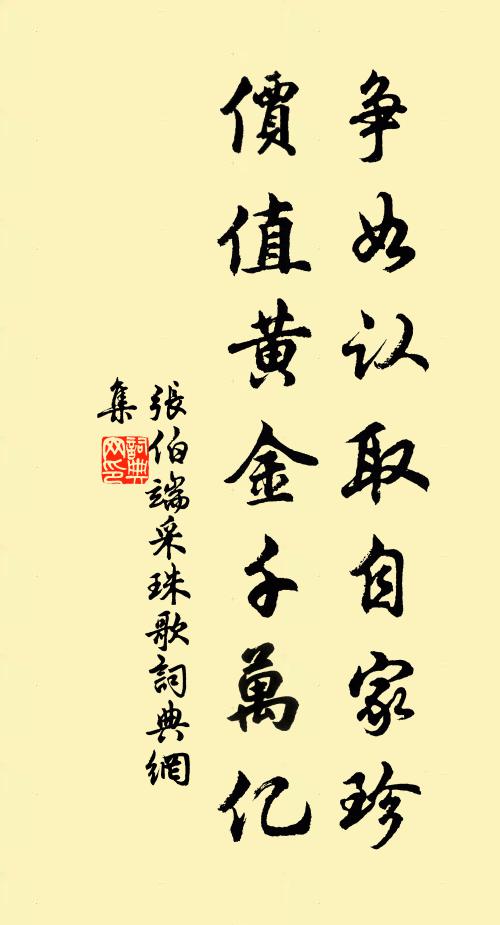 争如认取自家珍
價值黄金千萬亿
張伯端采珠歌詞典網
集
詞典网印